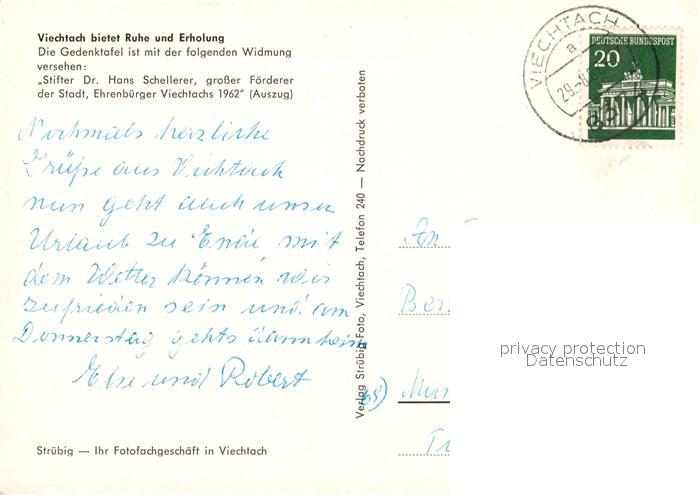 Viechtach bietet Ruhe und Erholung
Die Gedenktafel ist mit der folgenden Widmung
versehen:
„Stifter Dr. Hans Schellerer, großer Förderer
der Stadt, Ehrenbürger Viechtachs 1962" (Auszug)
Nochmals herzliche
Grüße aus Viechtach
nun geht auch unser
Urlaub zu Ende mit
dem Wetter können wir
zufrieden sein und am
Donnerstag gehts dann heim
Else und Robert
Strübig — Ihr Fotofachgeschäft in Viechtach
Verlag Strübig-Foto, Viechtach, Telefon 240 — Nachdruck verboten
VIECHTACH
a
DEUTSCHE BUNDESPOST
20
An
privacy protection
Datenschutz